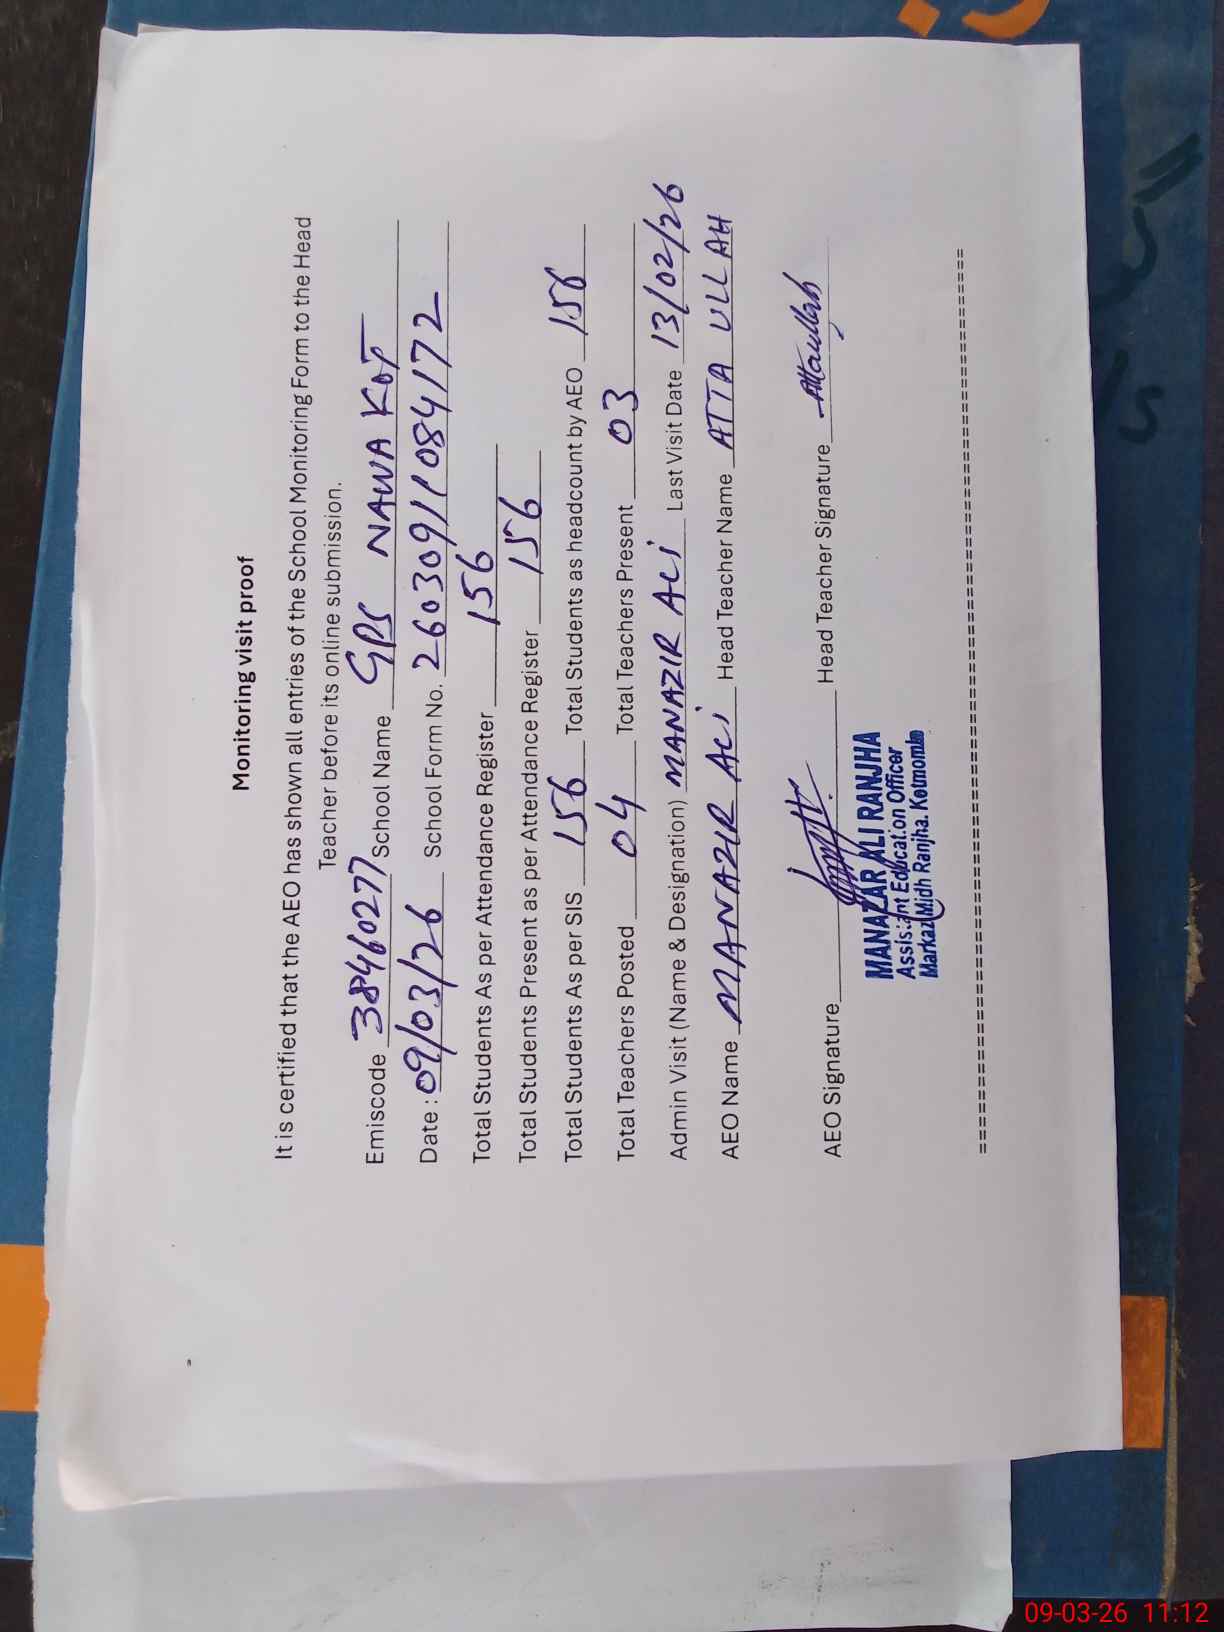 Monitoring visit proof
It is certified that the AEO has shown all entries of the School Monitoring Form to the Head
Teacher before its online submission.
Emiscode 38460277 School Name GPS NAWA KOT
Date : 09/03/26 School Form No. 26030911084172
Total Students As per Attendance Register 156
Total Students Present as per Attendance Register 156
Total Students As per SIS 156 Total Students as headcount by AEO 156
Total Teachers Posted 04 Total Teachers Present 03
Admin Visit (Name & Designation) MANAZIR ALi Last Visit Date 13/02/26
AEO Name MANAZIR ALi Head Teacher Name ATTA ULLAH
AEO Signature Head Teacher Signature Attaullah
MANAZAR ALI RANJHA
Assistant Education Officer
Markaz Midh Ranjha. Kotmomin
09-03-26 11:12